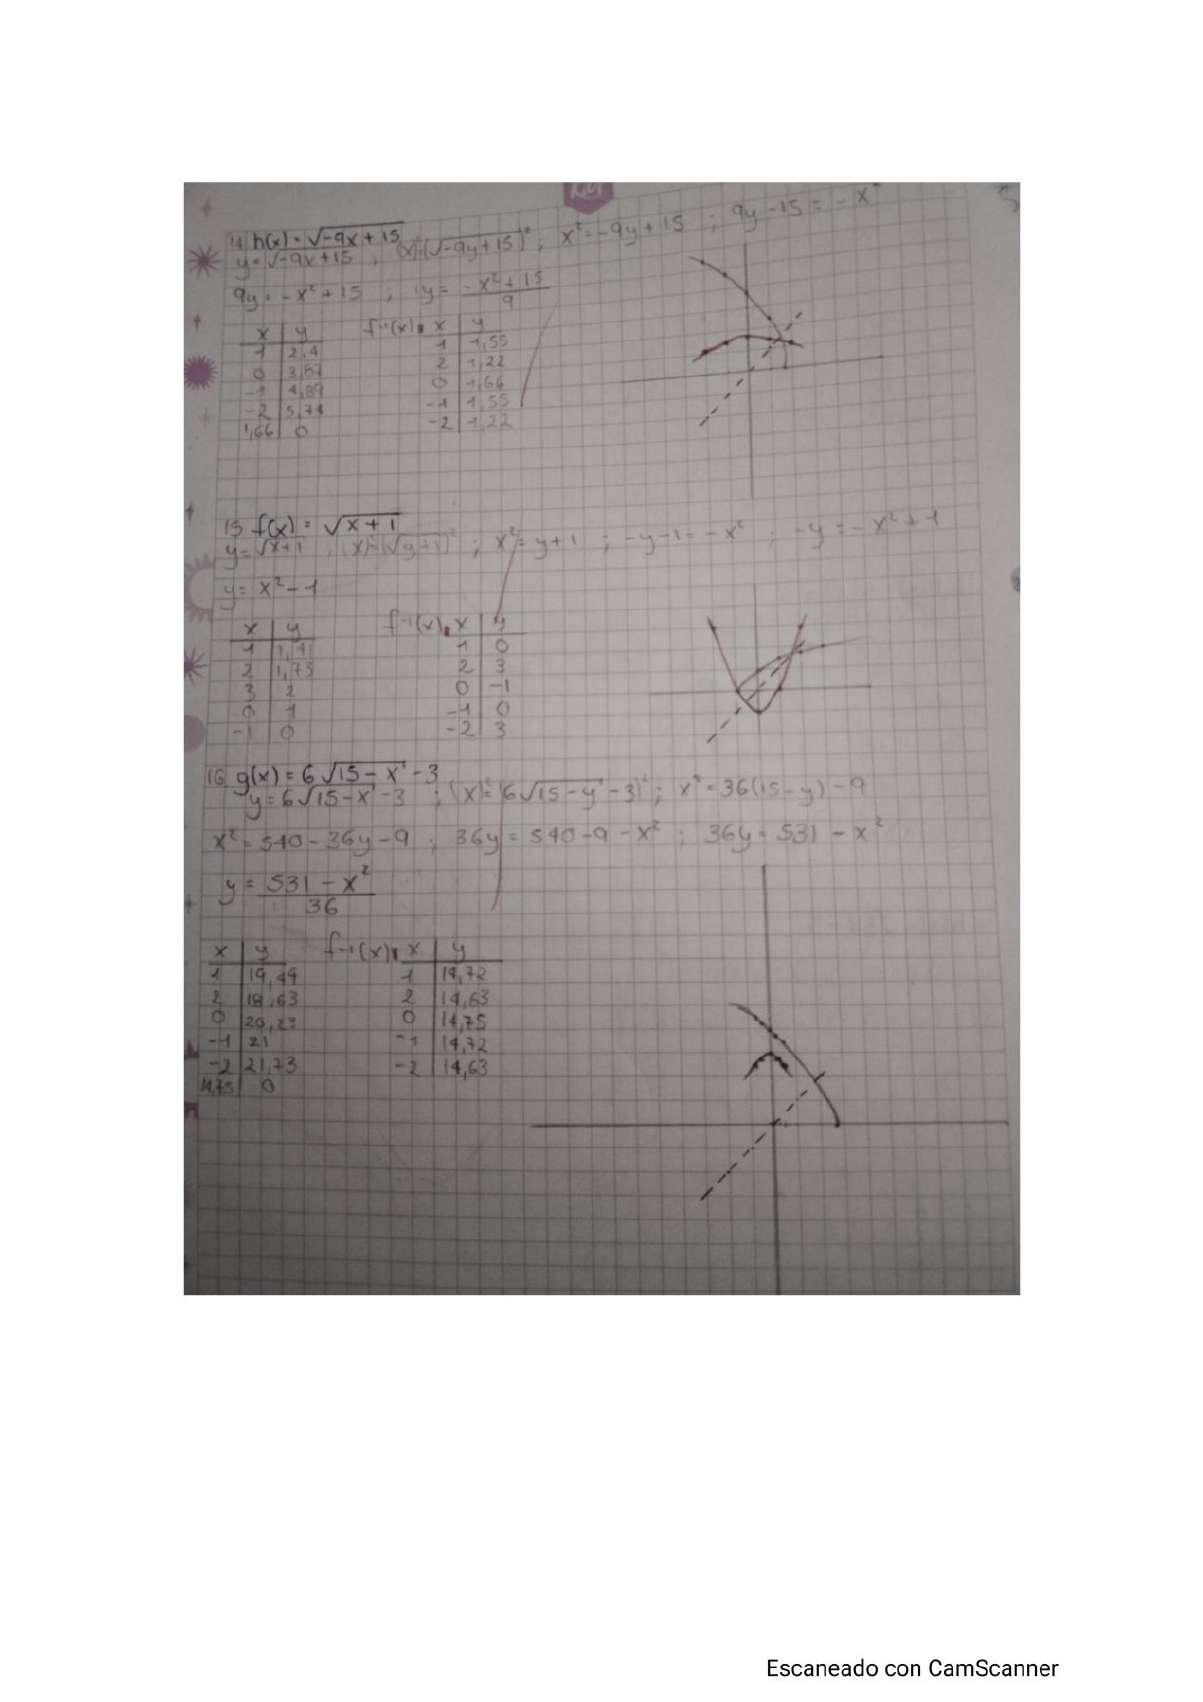 14. h(x) = √-9x + 15
y = √-9x+15 ; (x)²=(√-9y+15)² ; x² = -9y + 15 ; 9y - 15 = - x²
9y = - x² + 15 ; y = - x² + 15 / 9
x | y f⁻¹(x) x | y
1 | 2,4 1 | 1,55
0 | 3,87 2 | 1,22
-1 | 4,89 0 | 1,66
-2 | 5,74 -1 | 1,55
1,66 | 0 -2 | 1,22
15 f(x) = √x + 1
y = √x+1 ; (x)²=(√y+1)² ; x² = y + 1 ; -y - 1 = - x² ; -y = - x² + 1
y = x² - 1
x | y f⁻¹(x) x | y
1 | 1,41 1 | 0
2 | 1,73 2 | 3
3 | 2 0 | -1
0 | 1 -1 | 0
-1 | 0 -2 | 3
16 g(x) = 6√15 - x - 3
y = 6√15-x - 3 ; (x)²=(6√15-y - 3)² ; x² = 36(15-y) - 9
x² = 540 - 36y - 9 ; 36y = 540 - 9 - x² ; 36y = 531 - x²
y = 531 - x² / 36
x | y f⁻¹(x) x | y
1 | 19,44 1 | 14,72
2 | 18,63 2 | 14,63
0 | 20,23 0 | 14,75
-1 | 21 -1 | 14,72
-2 | 21,73 -2 | 14,63
14,75 | 0
Escaneado con CamScanner